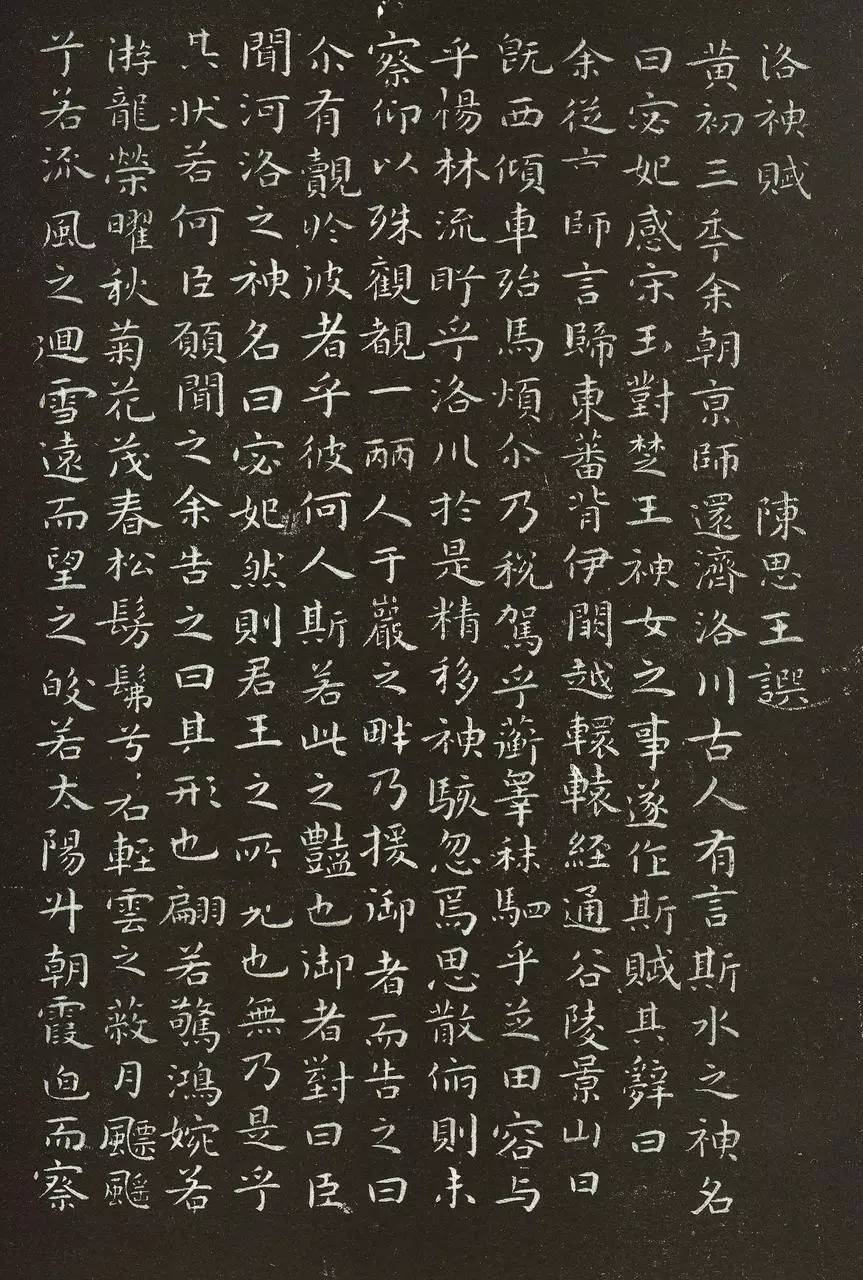 洛神賦 陳思王譔
黃初三秊余朝京師還濟洛川古人有言斯水之神名
曰宓妃感宋玉對楚王神女之事遂作斯賦其辭曰
余從京師言歸東蕃背伊闕越轘轅經通谷陵景山日
既西傾車殆馬煩尒乃稅駕乎蘅睪秣駟乎芝田容与
乎楊林流眄乎洛川扵是精移神駭忽焉思散俯則未
察仰以殊觀覩一麗人于巖之畔乃援御者而告之曰
尒有覿扵彼者乎彼何人斯若此之豔也御者對曰臣
聞河洛之神名曰宓妃然則君王之所見也無乃是乎
其狀若何臣願聞之余告之曰其形也翩若驚鴻婉若
游龍榮曜秋菊花茂春松髣髴兮若輕雲之蔽月飄颻
兮若流風之迴雪遠而望之皎若太陽升朝霞迫而察